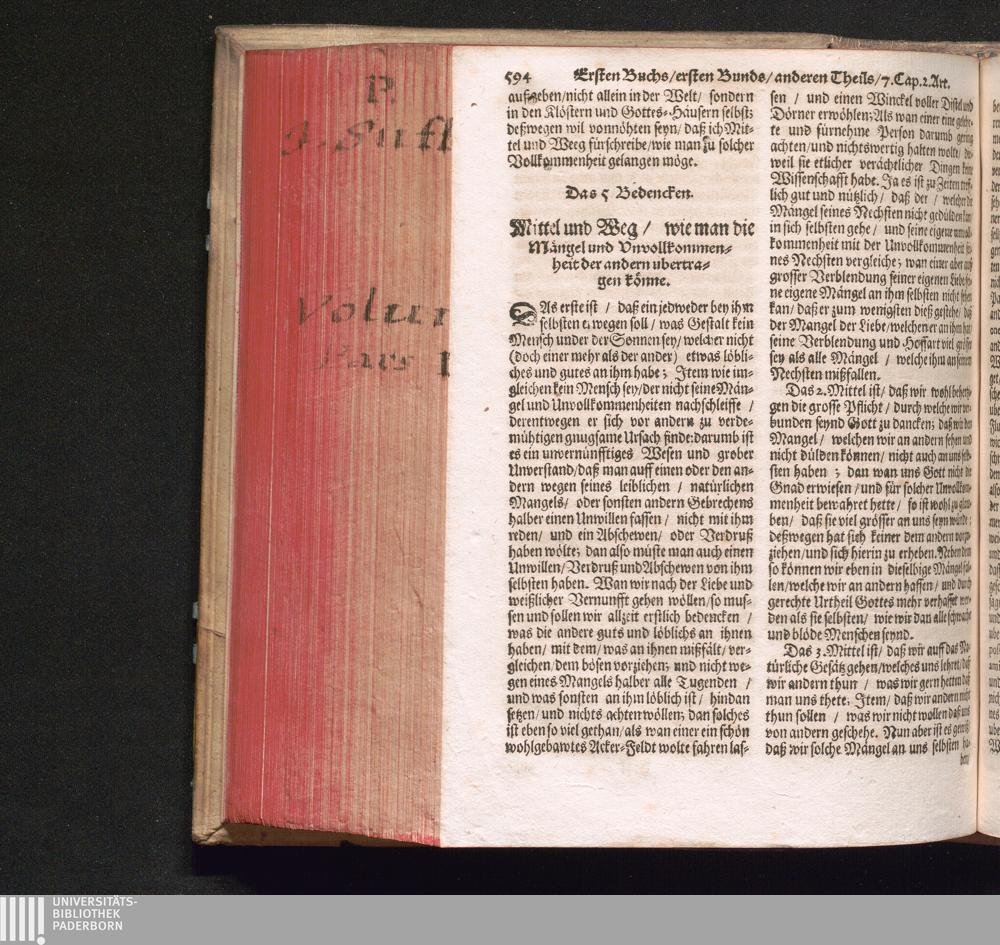 P.
Volum
Pars I
594 Ersten Buchs/ersten Bunds/anderen Theils/7.Cap.2.Art.
aufgeben/nicht allein in der Welt/ sondern
in den Klöstern und Gottes-Häusern selbst;
deßwegen wil vonnöhten seyn/daß ich Mit-
tel und Weeg fürschreibe/wie man zu solcher
Vollkommenheit gelangen möge.
Das 5 Bedencken.
Mittel und Weg / wie man die
Mängel und Vnvollkommen-
heit der andern ubertra-
gen könne.
DAs erste ist / daß ein jedweder bey ihm
selbsten erwegen soll / was Gestalt kein
Mensch under der Sonnen sey/ welcher nicht
(doch einer mehr als der ander) etwas löbli-
ches und gutes an ihm habe; Item wie im-
gleichen kein Mensch sey/der nicht seine Män-
gel und Unvollkommenheiten nachschleiffe /
derentwegen er sich vor andern zu verde-
mühtigen gnugsame Ursach finde: darumb ist
es ein unvernünfftiges Wesen und grober
Unverstand/daß man auff einen oder den an-
dern wegen seines leiblichen / natürlichen
Mangels/ oder sonsten andern Gebrechens
halber einen Unwillen fassen / nicht mit ihm
reden/ und ein Abschewen/ oder Verdruß
haben wölte; dan also müste man auch einen
Unwillen/Verdruß und Abschewen von ihm
selbsten haben. Wan wir nach der Liebe und
weißlicher Vernunfft gehen wöllen/so mus-
sen und sollen wir allzeit erstlich bedencken /
was die andere guts und löblichs an ihnen
haben/ mit dem/was an ihnen mißfält/ ver-
gleichen/dem bösen vorziehen; und nicht we-
gen eines Mangels halber alle Tugenden /
und was sonsten an ihm löblich ist/ hindan
setzen/und nichts achten wöllen; dan solches
ist eben so viel gethan/als wan einer ein schön
wohlgebawtes Acker-Feldt wolte fahren las-
sen / und einen Winckel voller Distel und
Dörner erwöhlen; Als wan einer eine gelehr-
te und fürnehme Person darumb gering
achten/und nichtswertig halten wolte/ die-
weil sie etlicher verächtlicher Dingen keine
Wissenschafft habe. Ja es ist zu Zeiten treff-
lich gut und nützlich/ daß der / welcher die
Mängel seines Nechsten nicht gedülden kan/
in sich selbsten gehe/ und seine eigene unvoll-
kommenheit mit der Unvollkommenheit sei-
nes Nechsten vergleiche; wan einer aber auß
grosser Verblendung seiner eigenen Liebe sei-
ne eigene Mängel an ihm selbsten nicht sehen
kan/daß er zum wenigsten dieß gestehe/ daß
der Mangel der Liebe/welchen er an ihm hat
seine Verblendung und Hoffart viel grösser
sey als alle Mängel / welche ihm an seinem
Nechsten mißfallen.
Das 2.Mittel ist/ daß wir wohl behertzi-
gen die grosse Pflicht / durch welche wir ver-
bunden seynd Gott zu dancken; daß wir den
Mangel/ welchen wir an andern sehen und
nicht dülden können/ nicht auch an uns selb-
sten haben ; dan wan uns Gott nicht die
Gnad erwiesen /und für solcher Unvollkom-
menheit bewahret hette/ so ist wohl zu glau-
ben/ daß sie viel grösser an uns seyn würde;
deßwegen hat sich keiner dem andern vorzu-
ziehen/und sich hierin zu erheben. Neben dem
so können wir eben in dieselbige Mängel fal-
len/welche wir an andern hassen/ und durch
gerechte Urtheil Gottes mehr verhasset wer-
den als sie selbsten/ wie wir dan alle schwache
und blöde Menschen seynd.
Das 3.Mittel ist/ daß wir auff das Na-
türliche Gesätz gehen/welches uns lehret/daß
wir andern thun / was wir gern hetten daß
man uns thete; Item/ daß wir andern nicht
thun sollen / was wir nicht wollen daß uns
von andern geschehe. Nun aber ist es gewiß/
daß wir solche Mängel an uns selbsten ha-
ben/
UNIVERSITÄTS-
BIBLIOTHEK
PADERBORN